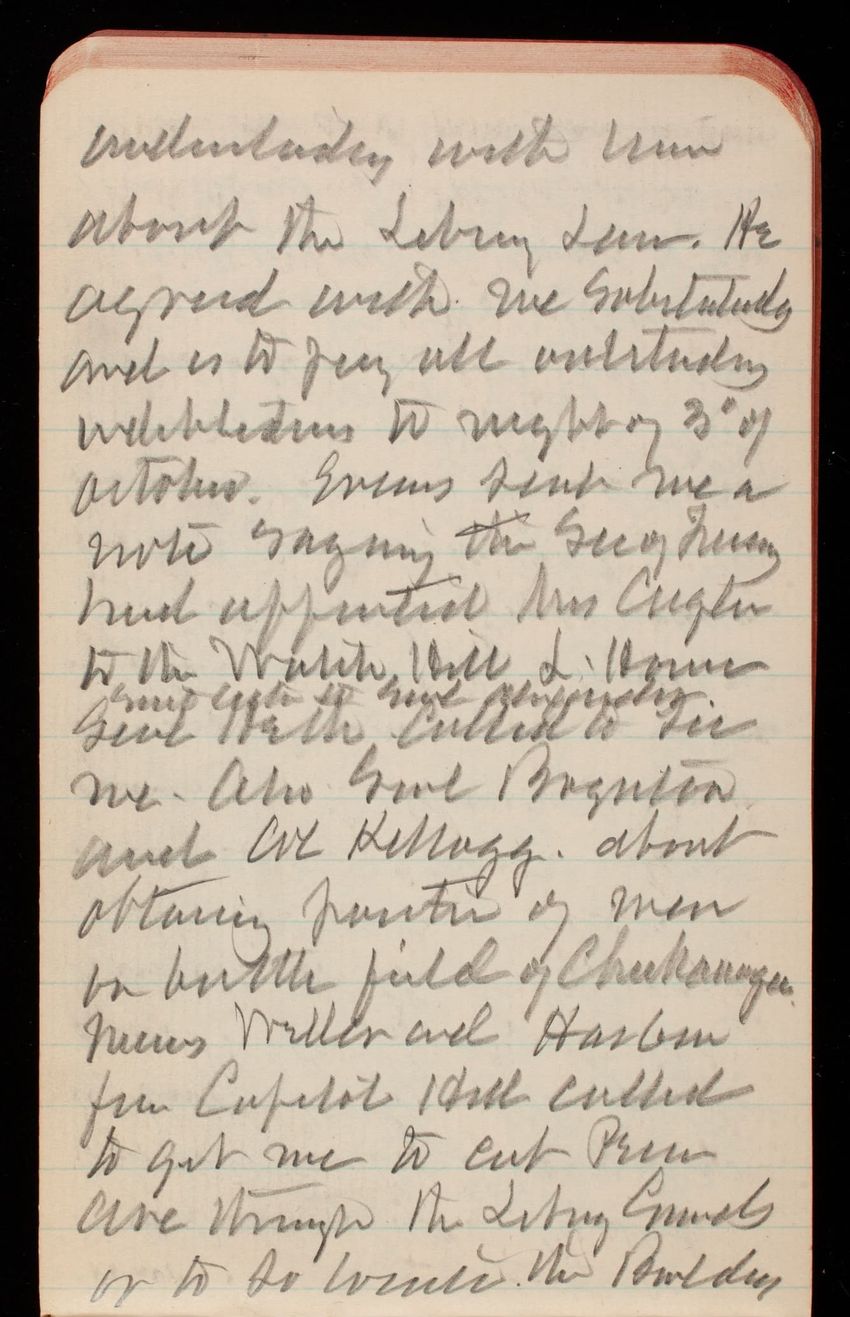 understanding with him
about the Library Law. He
agreed with me substantially
and is to pay all outstanding
indebtedness to night of 3d of
October. Evans sent me a
note saying the Sec of Treasy
had appointed Mrs
to the Watch Hill L. House
Genl Heth called to see
me. Also Genl Boynton
and Col Kellogg. about
obtaining position of men
on battle field of Chickamauga.
Weller and
from Capitol Hill called
to get me to cut Penn
Ave through the Library Grounds
or to so locate the Building